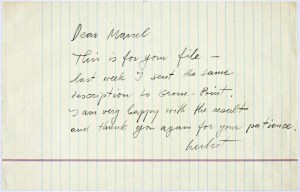 Dear Marcel
This is for your file –
last week I sent the same
description to Crone-Print.
I am very happy with the result
and thank you again for your patience.